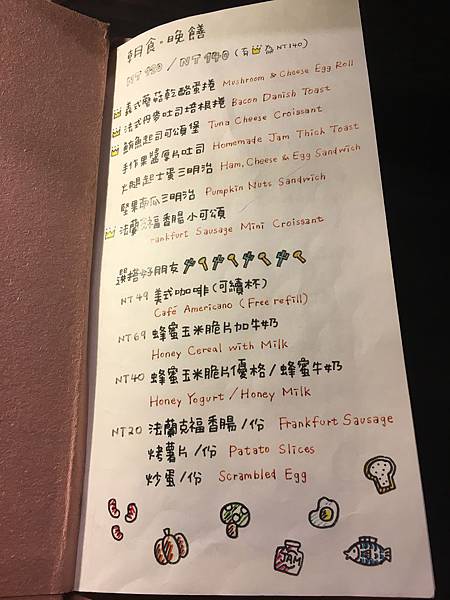 朝食·晚膳
NT 120 / NT 140 (有 為 NT140)
義式蘑菇乾酪蛋捲 Mushroom & Cheese Egg Roll
法式丹麥吐司培根捲 Bacon Danish Toast
鮪魚起司可頌堡 Tuna Cheese Croissant
手作果醬厚片吐司 Homemade Jam Thick Toast
火腿起士蛋三明治 Ham, Cheese & Egg Sandwich
堅果南瓜三明治 Pumpkin Nuts Sandwich
法蘭克福香腸小可頌
Frankfurt Sausage Mini Croissant
選搭好朋友
NT49 美式咖啡(可續杯)
Café Americano (Free refill)
NT69 蜂蜜玉米脆片加牛奶
Honey Cereal with Milk
NT40 蜂蜜玉米脆片優格/蜂蜜牛奶
Honey Yogurt / Honey Milk
NT20 法蘭克福香腸/份 Frankfurt Sausage
烤薯片/份 Patato Slices
炒蛋/份 Scrambled Egg
JAM